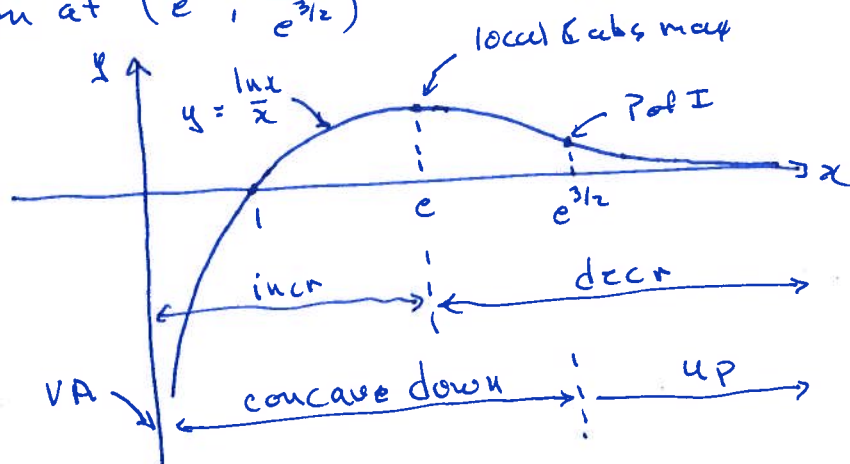 at (e , e^{3/2})
local & abs max
y
y = ln x / x
P of I
x
1
e
e^{3/2}
incr
decr
VA
concave down
up